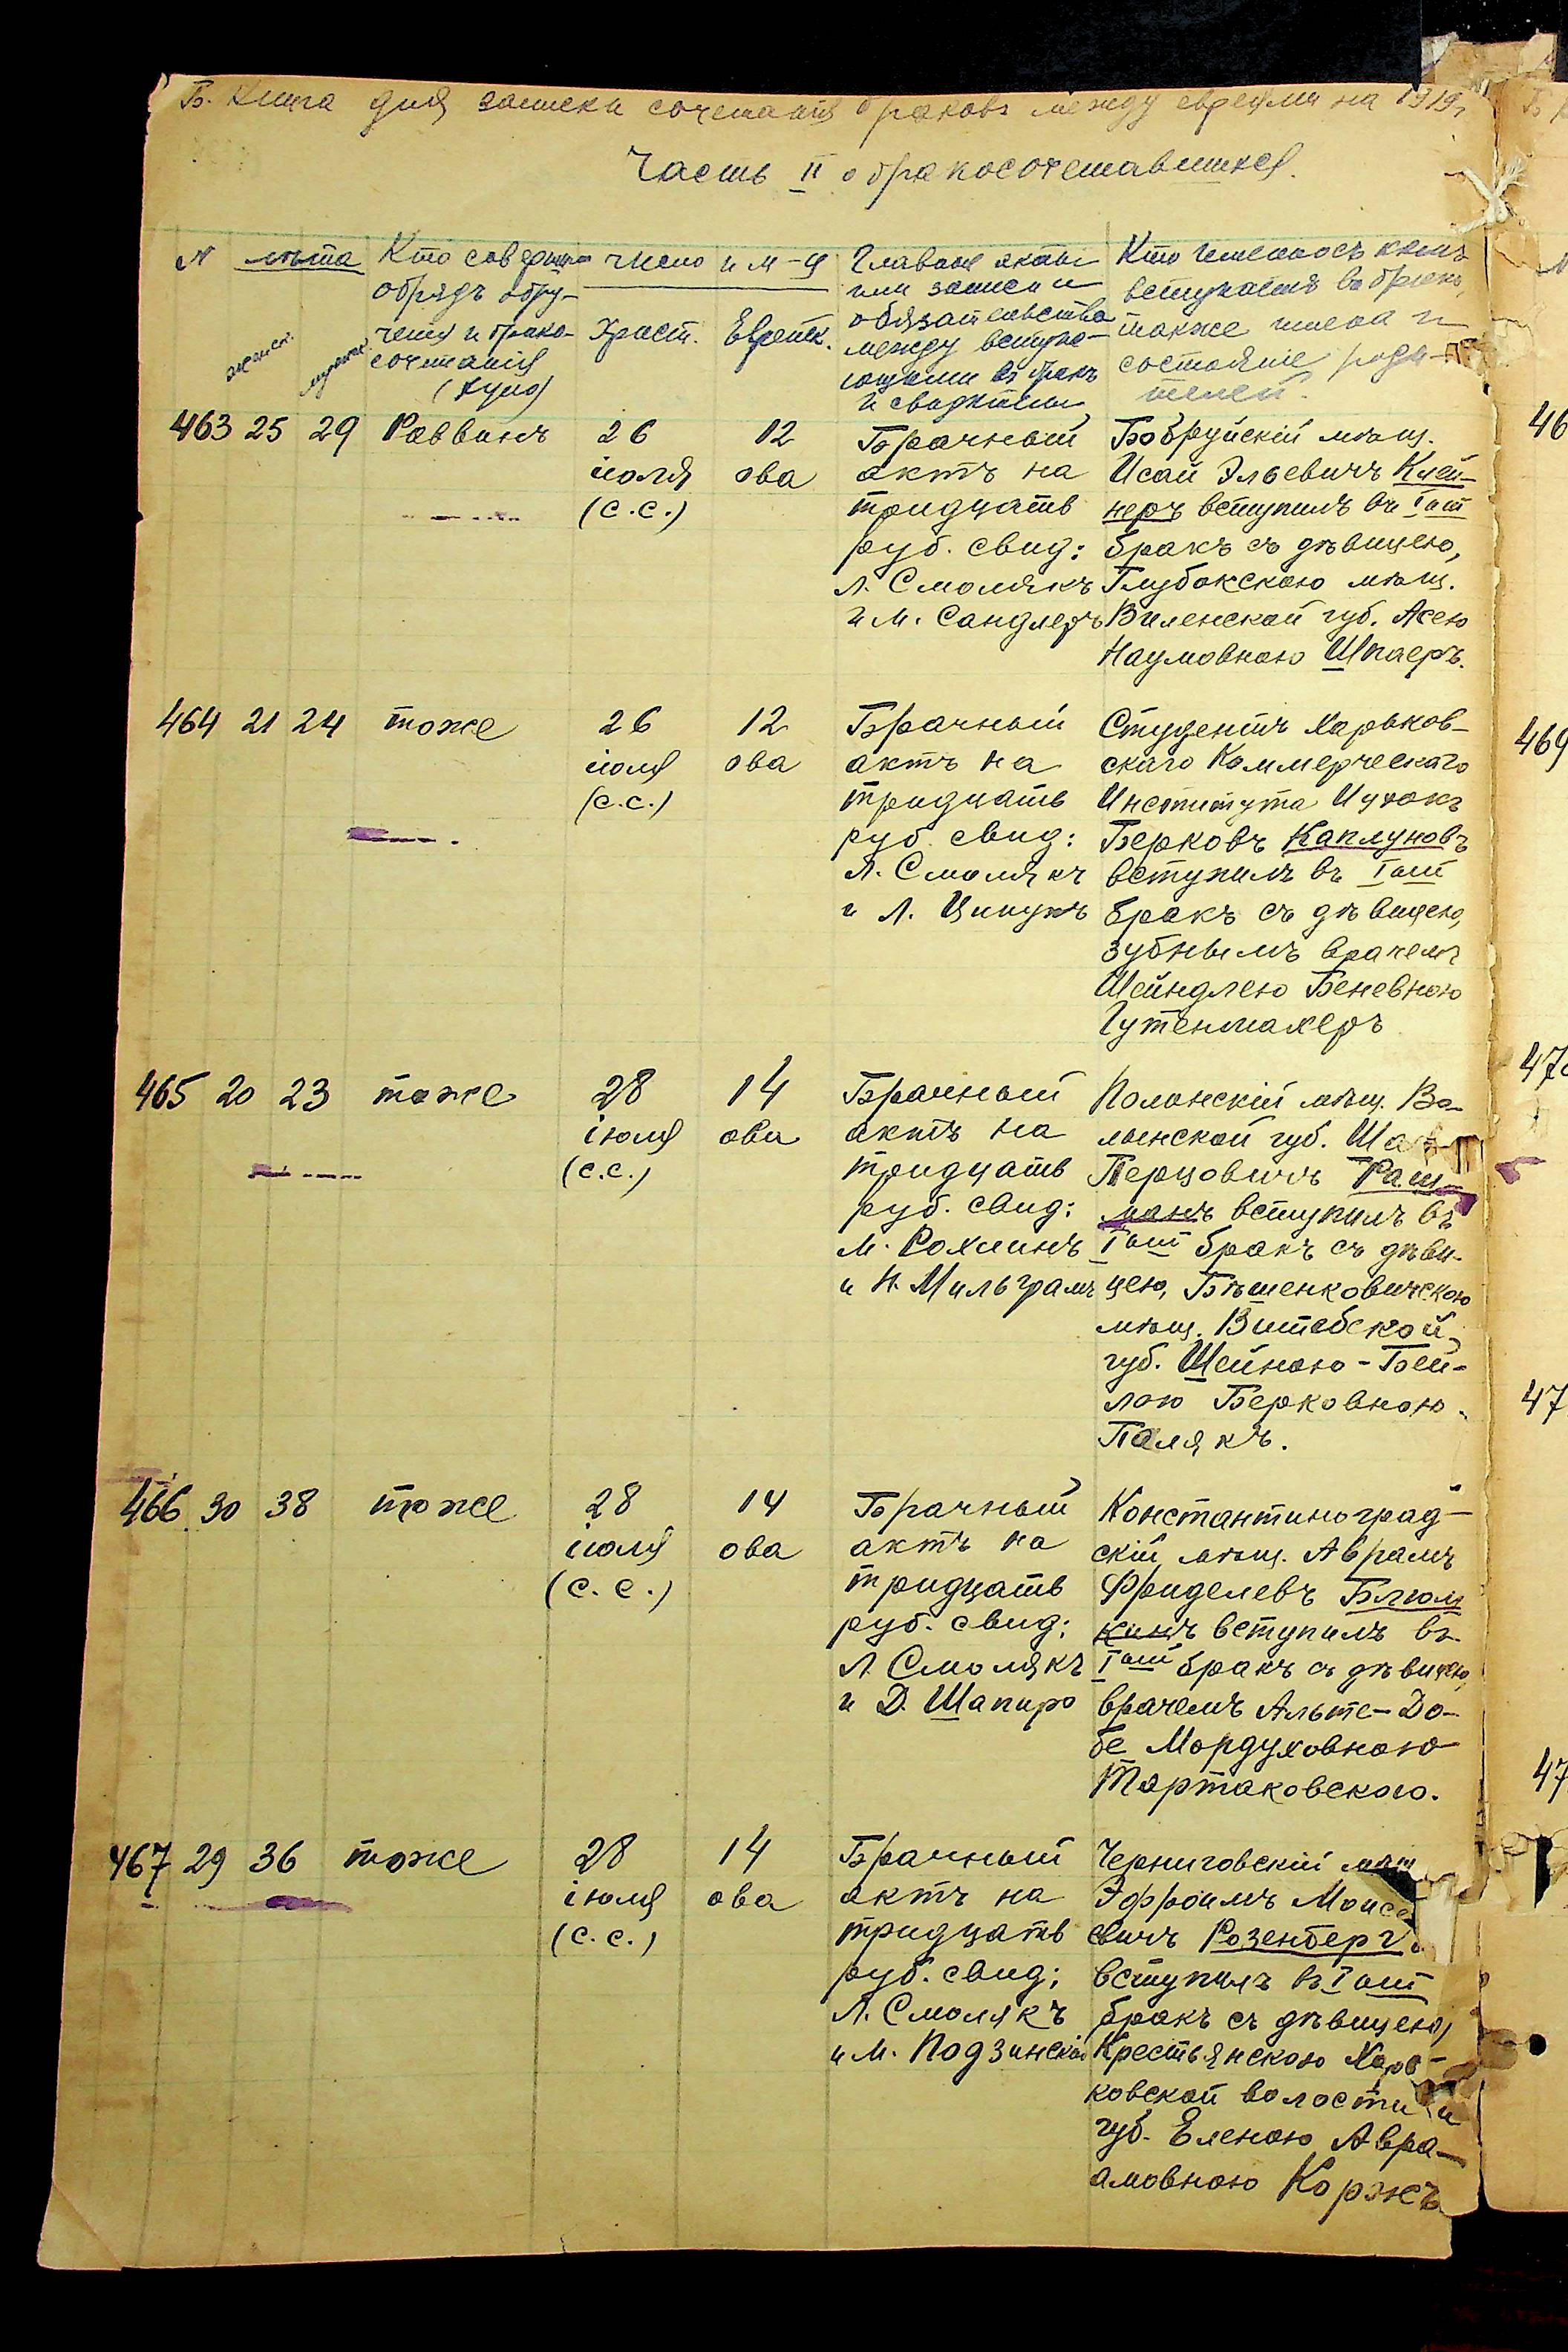 Б. Книга для записки сочетанія браковъ между евреями на 1919 г.
Часть II о бракосочетавшихся.
№ лѣта Кто соверш. число и м-ц Главные акты Кто именно съ кѣмъ
женск. мужск.
обрядъ обру-
ченія и брако-
сочетанія
(хупо)
Христ. Еврейск.
или записи и
обязательства
между вступа-
ющими въ бракъ
и свидѣтели
вступаетъ въ бракъ,
также имена и
состояніе роди-
телей.
463 25 29 Раввинъ
26
іюля
(с.с.)
12
ова
Брачный
актъ на
тридцать
руб. свид:
Л. Смолякъ
и М. Сандлеръ
Бобруйскій мѣщ.
Исай Эльевичъ Клей-
неръ вступилъ въ Iый
бракъ съ дѣвицею,
Глубокскою мѣщ.
Виленской губ. Асею
Наумовною Шпаеръ.
464 21 24 тоже
26
іюля
(с.с.)
12
ова
Брачный
актъ на
тридцать
руб. свид:
Л. Смолякъ
и Л.
Студентъ Харьков-
скаго Коммерческаго
Института Ицхокъ
Берковъ Каплуновъ
вступилъ въ Iый
бракъ съ дѣвицею,
зубнымъ врачемъ
Шейндлею Беневною
Гутенмахеръ
465 20 23 тоже
28
іюля
(с.с.)
14
ова
Брачный
актъ на
тридцать
руб. свид:
М. Рохлинъ
и Н. Мильграмъ
Полонскій мѣщ. Во-
лынской губ.
Перцовичъ Раш-
манъ вступилъ въ
Iый бракъ съ дѣви-
цею, Бѣшенковичскою
мѣщ. Витебской
губ. Шейною-Бей-
лою Берковною
Полякъ.
466 30 38 тоже
28
іюля
(с.с.)
14
ова
Брачный
актъ на
тридцать
руб. свид:
Л. Смолякъ
и Д. Шапиро
Константиноград-
скій мѣщ. Аврамъ
Фриделевъ Блюм
кинъ вступилъ въ
Iый бракъ съ дѣвицею,
врачемъ Альте-До-
бе Мордуховною
Тартаковскою.
467 29 36 тоже
28
іюля
(с.с.)
14
ова
Брачный
актъ на
тридцать
руб. свид:
Л. Смолякъ
и М. Подзинскій
Черниговскій мѣщ
Эфроимъ Моисе
евичъ Розенберг
вступилъ въ Iый
бракъ съ дѣвицею,
Крестьянскою Харь-
ковской волости и
губ. Еленою Авра-
амовною Коржъ
46
469
470
47
47